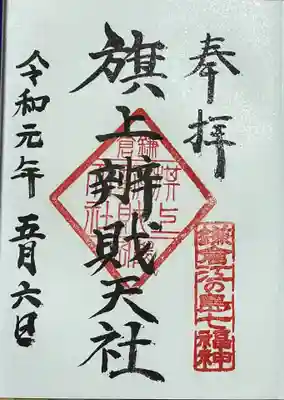 奉拝
鎌倉江の島七福神
旗上辨戝天社
令和元年 五月六日